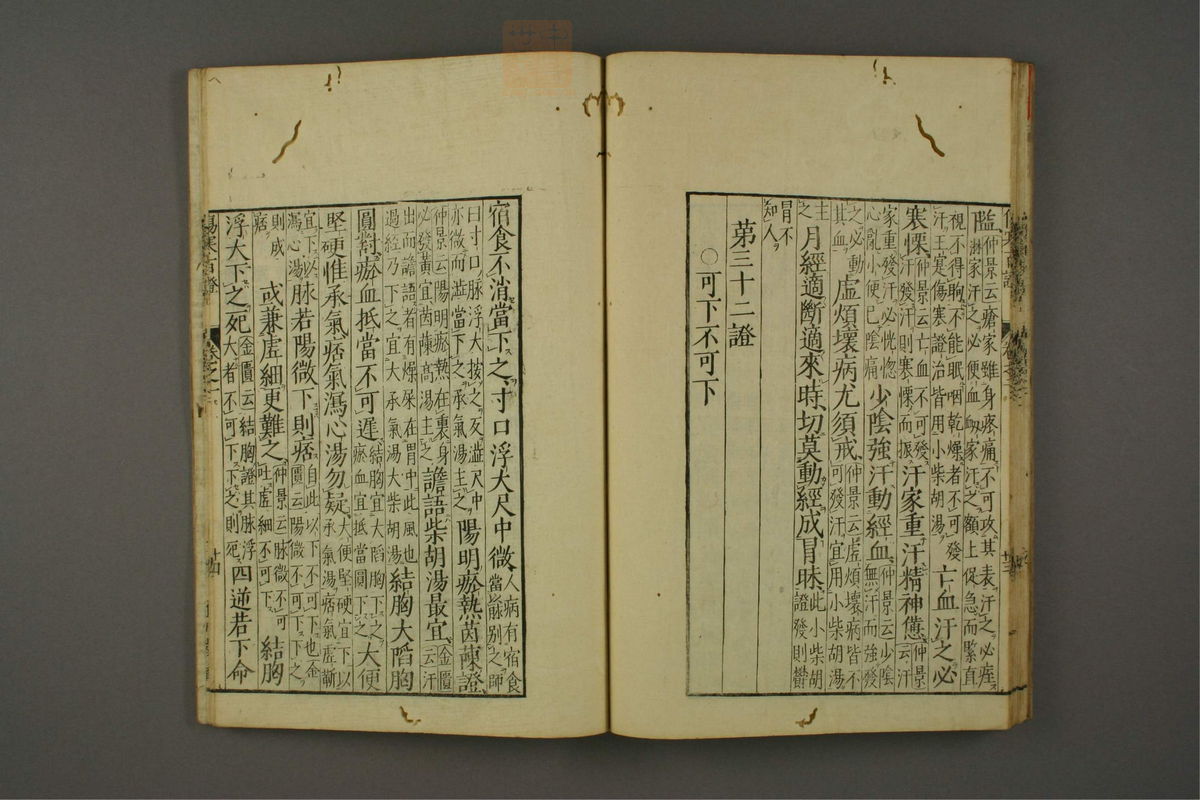 仲景云瘡家雖身疼痛不可攻其表汗之必痓
淋家汗之必便血衂家汗之額上促急而緊直
視不得眴不能眠咽乾燥者不可發
汗王寔傷寒證治皆用小柴胡湯
亡血汗之必
寒慄
仲景云亡血不可發
汗發汗則寒慄而振
汗家重汗精神憊
仲景
云汗
家重發汗必恍惚
心亂小便已陰痛
少陰強汗動經血
仲景云少陰
無汗而強發
之必動
其血
虛煩壞病尤須戒
仲景云虛煩壞病皆不
可發汗宜用小柴胡湯
主
之
月經適斷適來時切莫動經成冒昧
此小柴胡
證發則鬱
冒不
知人
第三十二證
○可下不可下
宿食不消當下之寸口浮大尺中微
人病有宿食
當脉別之師
曰寸口脉浮大按之反濇尺中
亦微而濇當下之承氣湯主之
陽明瘀熱茵蔯證
仲景云陽明瘀熱在裏身
必發黃宜茵蔯蒿湯主之
譫語柴胡湯最宜
金匱
云汗
出而譫語者有燥屎在胃中此風也
過經乃下之宜大承氣湯大柴胡湯
結胸大陷胸
圓對瘀血抵當不可遲
結胸宜大陷胸下之
瘀血宜抵當圓下之
大便
堅硬惟承氣痞氣瀉心湯勿疑
大便堅硬宜下以
承氣湯痞氣虛靳
宜下以
瀉心湯
脉若陽微下則痞
自此以下不可下也金
匱云陽微不可下下之
則成
痞
或兼虛細更難之
仲景云脉微不可
吐虛細不可下
結胸
浮大下之死
金匱云結胸證其脉浮
大者不可下下之則死
四逆若下命
傷寒百證
廿四